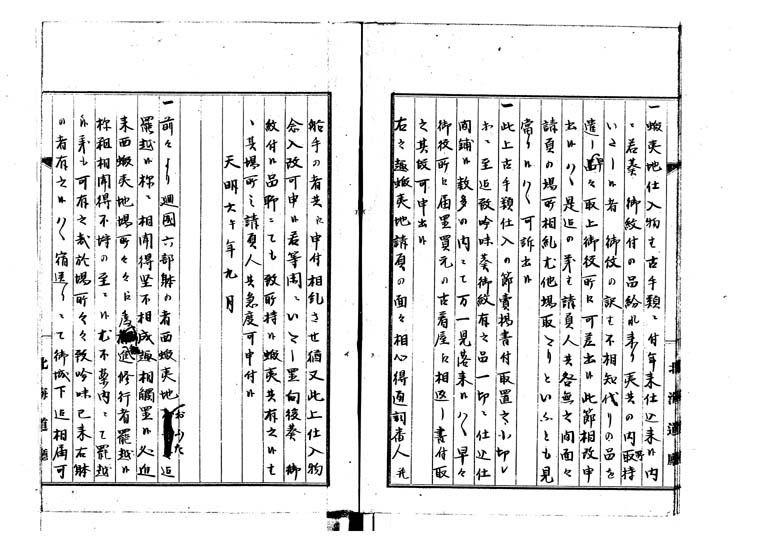 一蝦夷地仕入物も古手類ニ付年来仕込来候内
ニ若葵御紋付の品紛れ来り夷共の内取持
いたし候者御紋の訳も不相知代りの品を
遣し品々取上御役所に可差出候此節相改申
出候ハヽ是迄の義も請負人共咎無之間面々
請負の場所相糺尤他場取とりといふとも見
当り候ハヽ可訴出候
一此上古手類仕入の節賣揚書付取置之小切レ
ホニ至迄致吟味葵御紋有之品一切ニ仕込仕
間鋪候数多の内ニて万一見落来候ハヽ早々
御役所に届置買元の古着屋に相返し書付取
之其段可申出候
右之趣蝦夷地請負の面々相心得通詞番人并
船手の者共に申付相糺させ猶又此上仕入物
念入改可申候若等閑ニいたし置向後葵御
紋付候品聊ニても致所持候蝦夷共有之候ヽも
ヽ其場所之請負人共急度可申付候
天明六午年九月
一前々より廻国六部躰の者西蝦夷地おふた迄
罷越候祢ニ相聞得堅不相成趣相觸置候処近
来西蝦夷地場所々々に廻修行者罷越候
祢粗相聞得不埒の至ニ候尤不案内ニて罷越
候義も可有之哉於場所々々致吟味已来右躰
の者有之候ハヽ宿送りニて御城下迄相届可
北海道廳
北海道廳